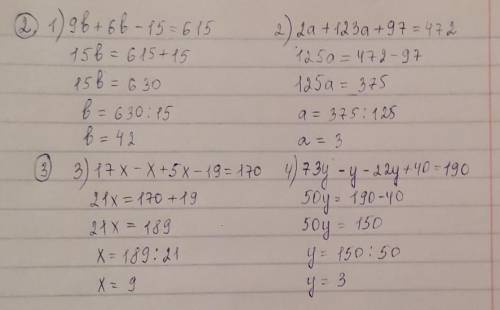 ② 1) 9b + 6b - 15 = 615
15b = 615 + 15
15b = 630
b = 630 : 15
b = 42
2) 2a + 123a + 97 = 472
125a = 472 - 97
125a = 375
a = 375 : 125
a = 3
③ 3) 17x - x + 5x - 19 = 170
21x = 170 + 19
21x = 189
x = 189 : 21
x = 9
4) 73y - y - 22y + 40 = 190
50y = 190 - 40
50y = 150
y = 150 : 50
y = 3